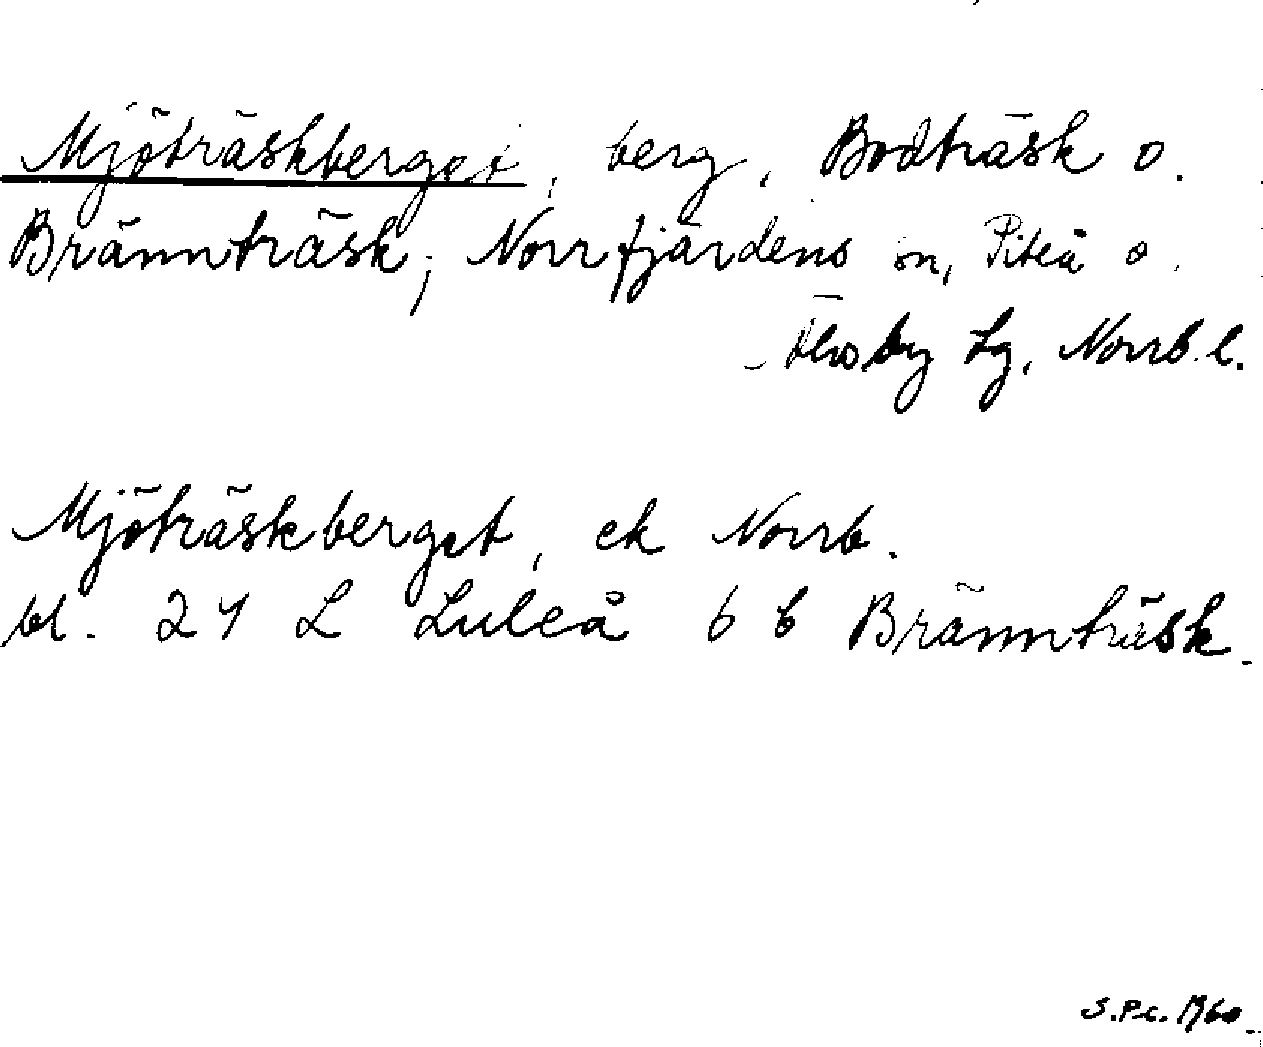 Mjöträskberget, berg, Bodträsk o.
Brännträsk; Norrfjärdens sn, Piteå o.
Älvsby lg, Norrb. l.
Mjöträskberget, ek Norrb.
bl. 24 L Luleå 6 b Brännträsk.
S.Pc. 1960